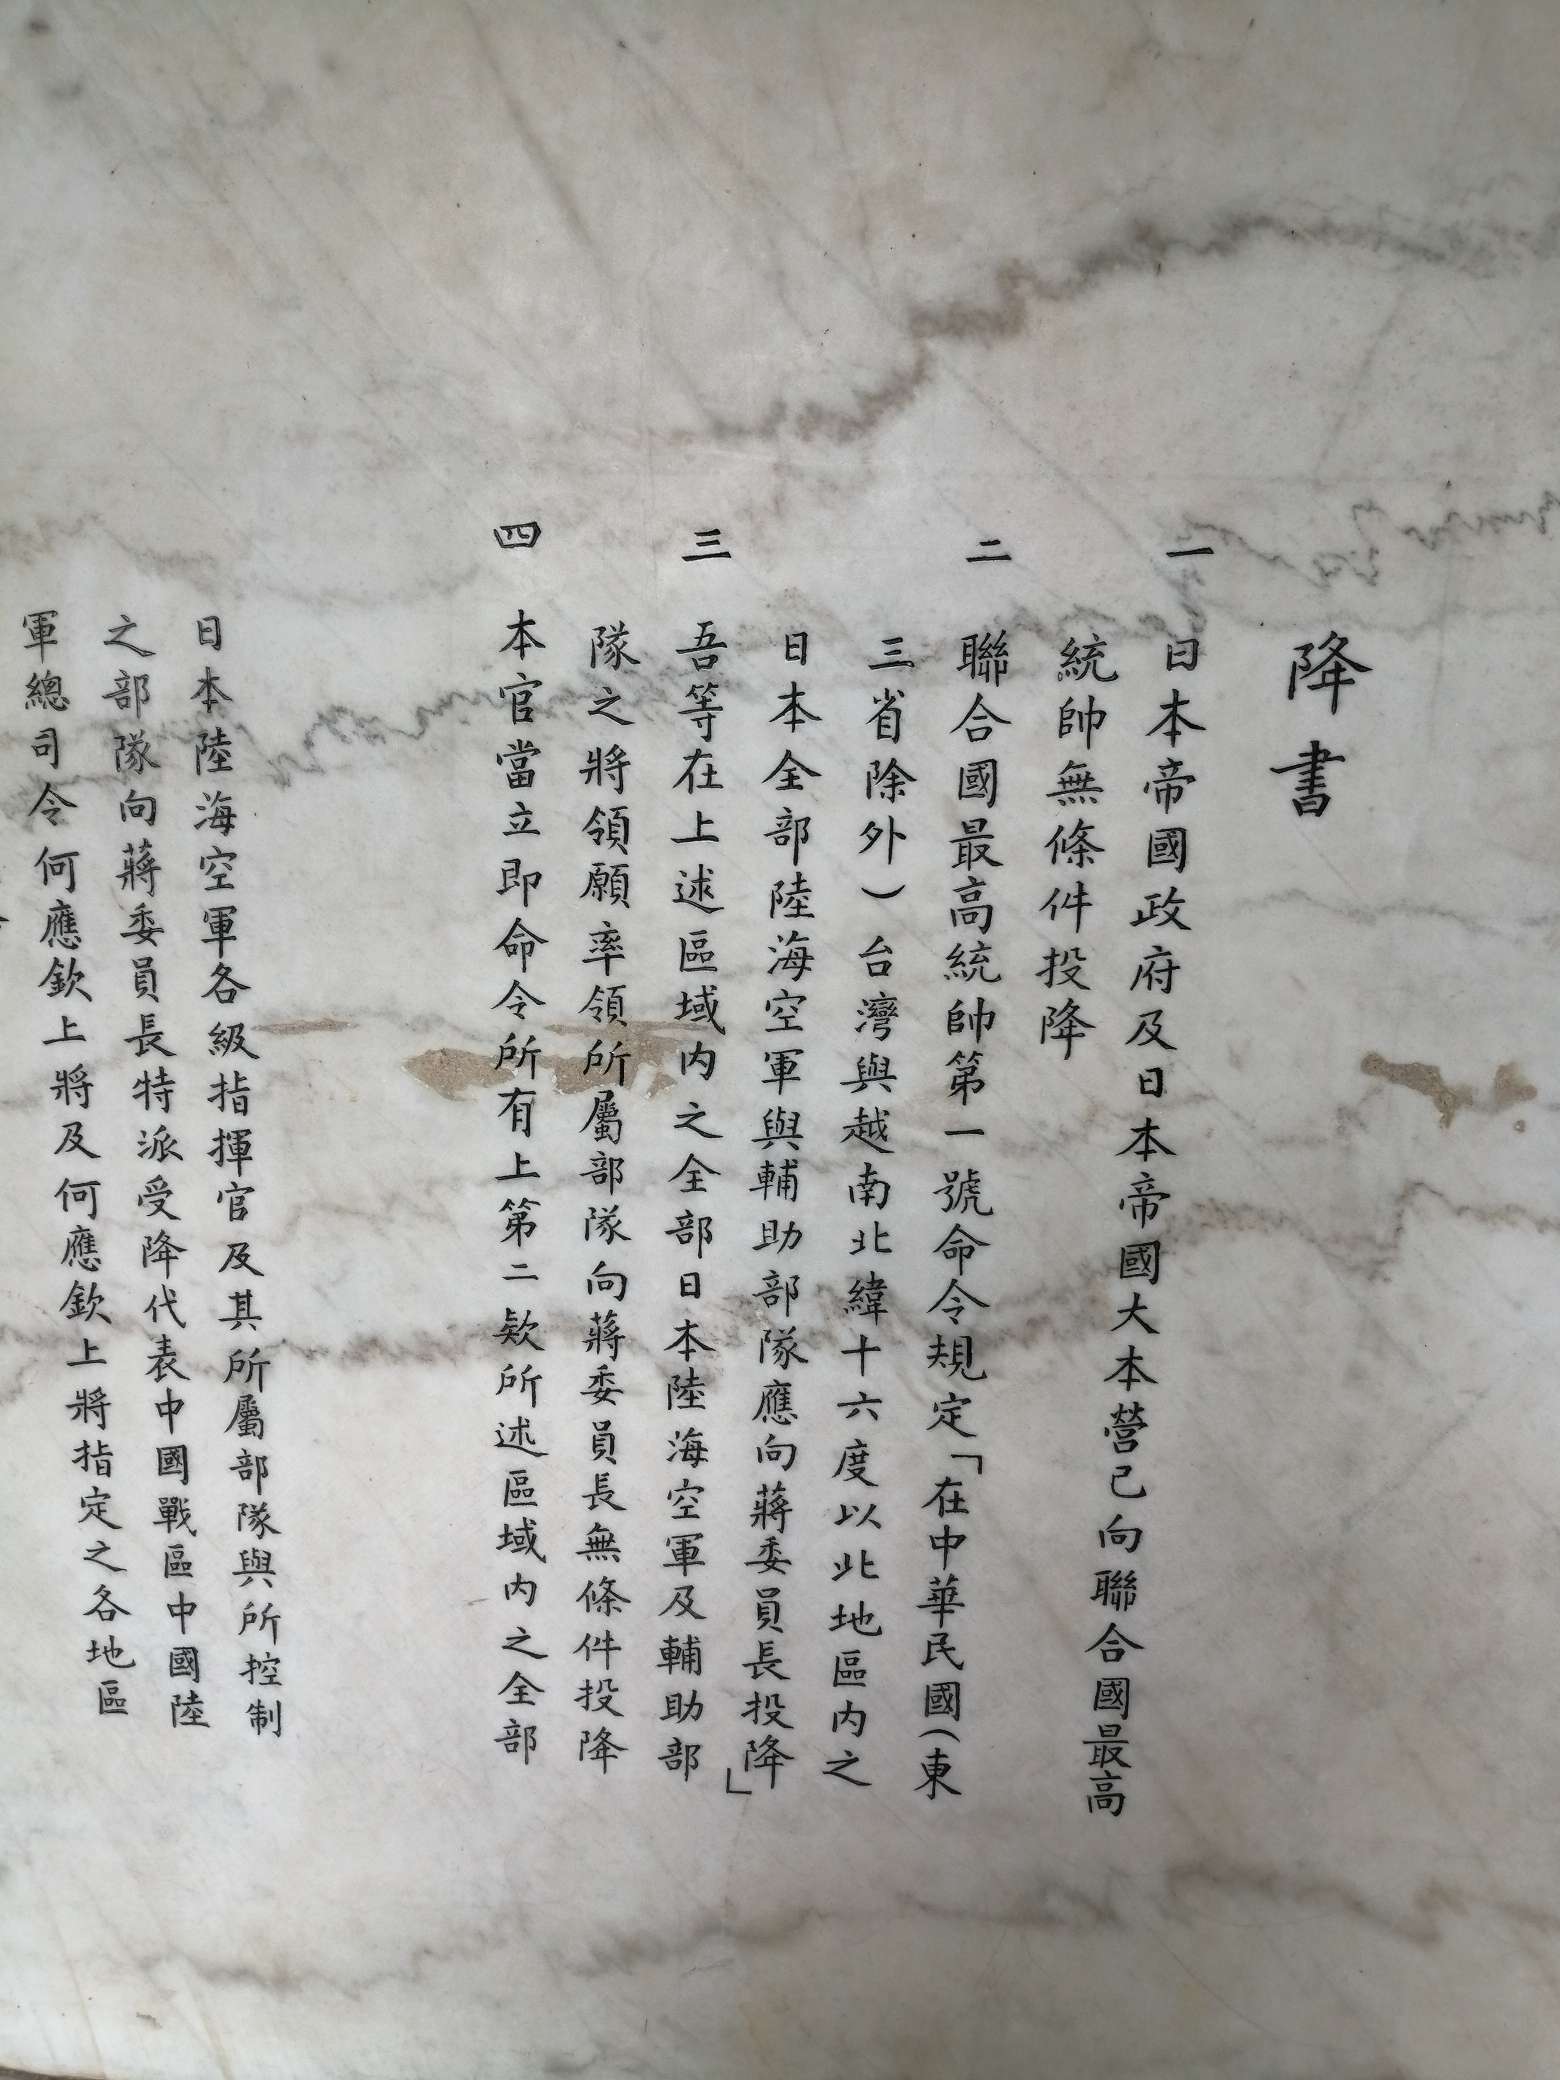 降書
一 日本帝國政府及日本帝國大本營已向聯合國最高
統帥無條件投降
二 聯合國最高統帥第一號命令規定「在中華民國（東
三省除外）台灣與越南北緯十六度以北地區内之
日本全部陸海空軍與輔助部隊應向蔣委員長投降」
三 吾等在上述區域内之全部日本陸海空軍及輔助部
隊之將領願率領所屬部隊向蔣委員長無條件投降
四 本官當立即命令所有上第二欵所述區域内之全部
日本陸海空軍各級指揮官及其所屬部隊與所控制
之部隊向蔣委員長特派受降代表中國戰區中國陸
軍總司令何應欽上將及何應欽上將指定之各地區